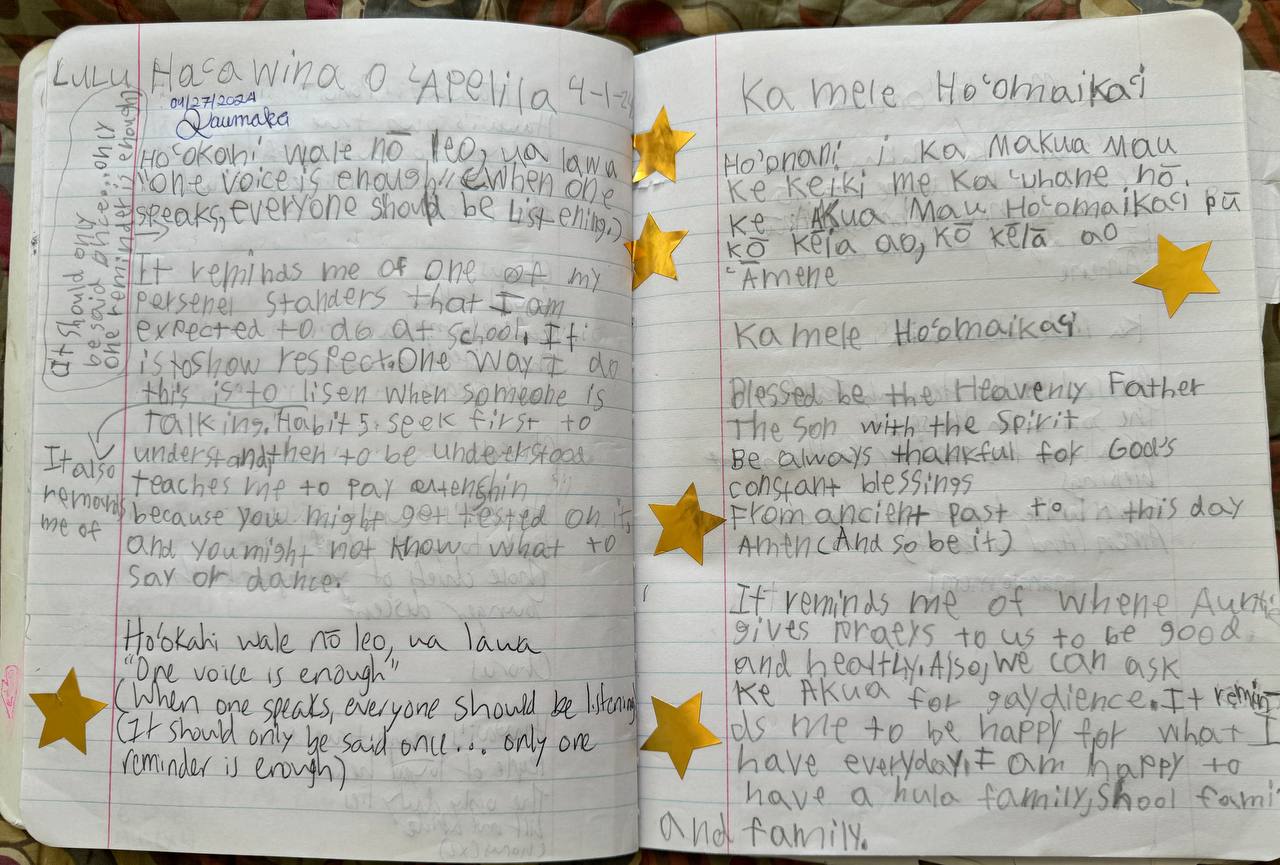 LuLu Haʻawina o ʻApelila 4-1-24
04/27/2024
Hoʻokahi wale nō leo, ua lawa
"one voice is enough" (when one
speaks, everyone should be listening.)
(It should only
be said once...only
one reminder is enough)
It reminds me of one of my
persenel standers that I am
expected to do at school. It
is to show respect. One way I do
this is to lisen when someone is
talking. Habit 5 seek first to
understand, then to be understood
It also
remands
me of
teaches me to pay attenshin
because you might get tested on it,
and you might not know what to
say or dance.
Hoʻokahi wale nō leo, ua lawa
"One voice is enough"
(When one speaks, everyone should be listening)
(It should only be said once... only one
reminder is enough)
Ka mele Hoʻomaikaʻi
Hoʻonani i ka Makua mau
Ke keiki me ka ʻuhane nō.
Ke Akua Mau Hoʻomaikaʻi pū
kō kēia ao, kō kēlā ao
ʻĀmene
Ka mele Hoʻomaikaʻi
Blessed be the Heavenly Father
The son with the spirit
Be always thankful for God's
constant blessings
From ancient past to this day
Amen (And so be it)
It reminds me of whene Auntie
gives praeys to us to be good
and healthy. Also, we can ask
Ke Akua for gaydience. It remin
ds me to be happy for what I
have everyday. I am happy to
have a hula family, Shool fami
and family.